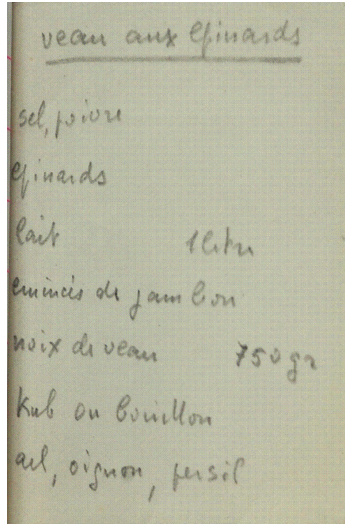 veau aux épinards
sel, poivre
épinards
lait 1 litre
émincés de jambon
noix de veau 750 gr
Kub ou bouillon
ail, oignon, persil